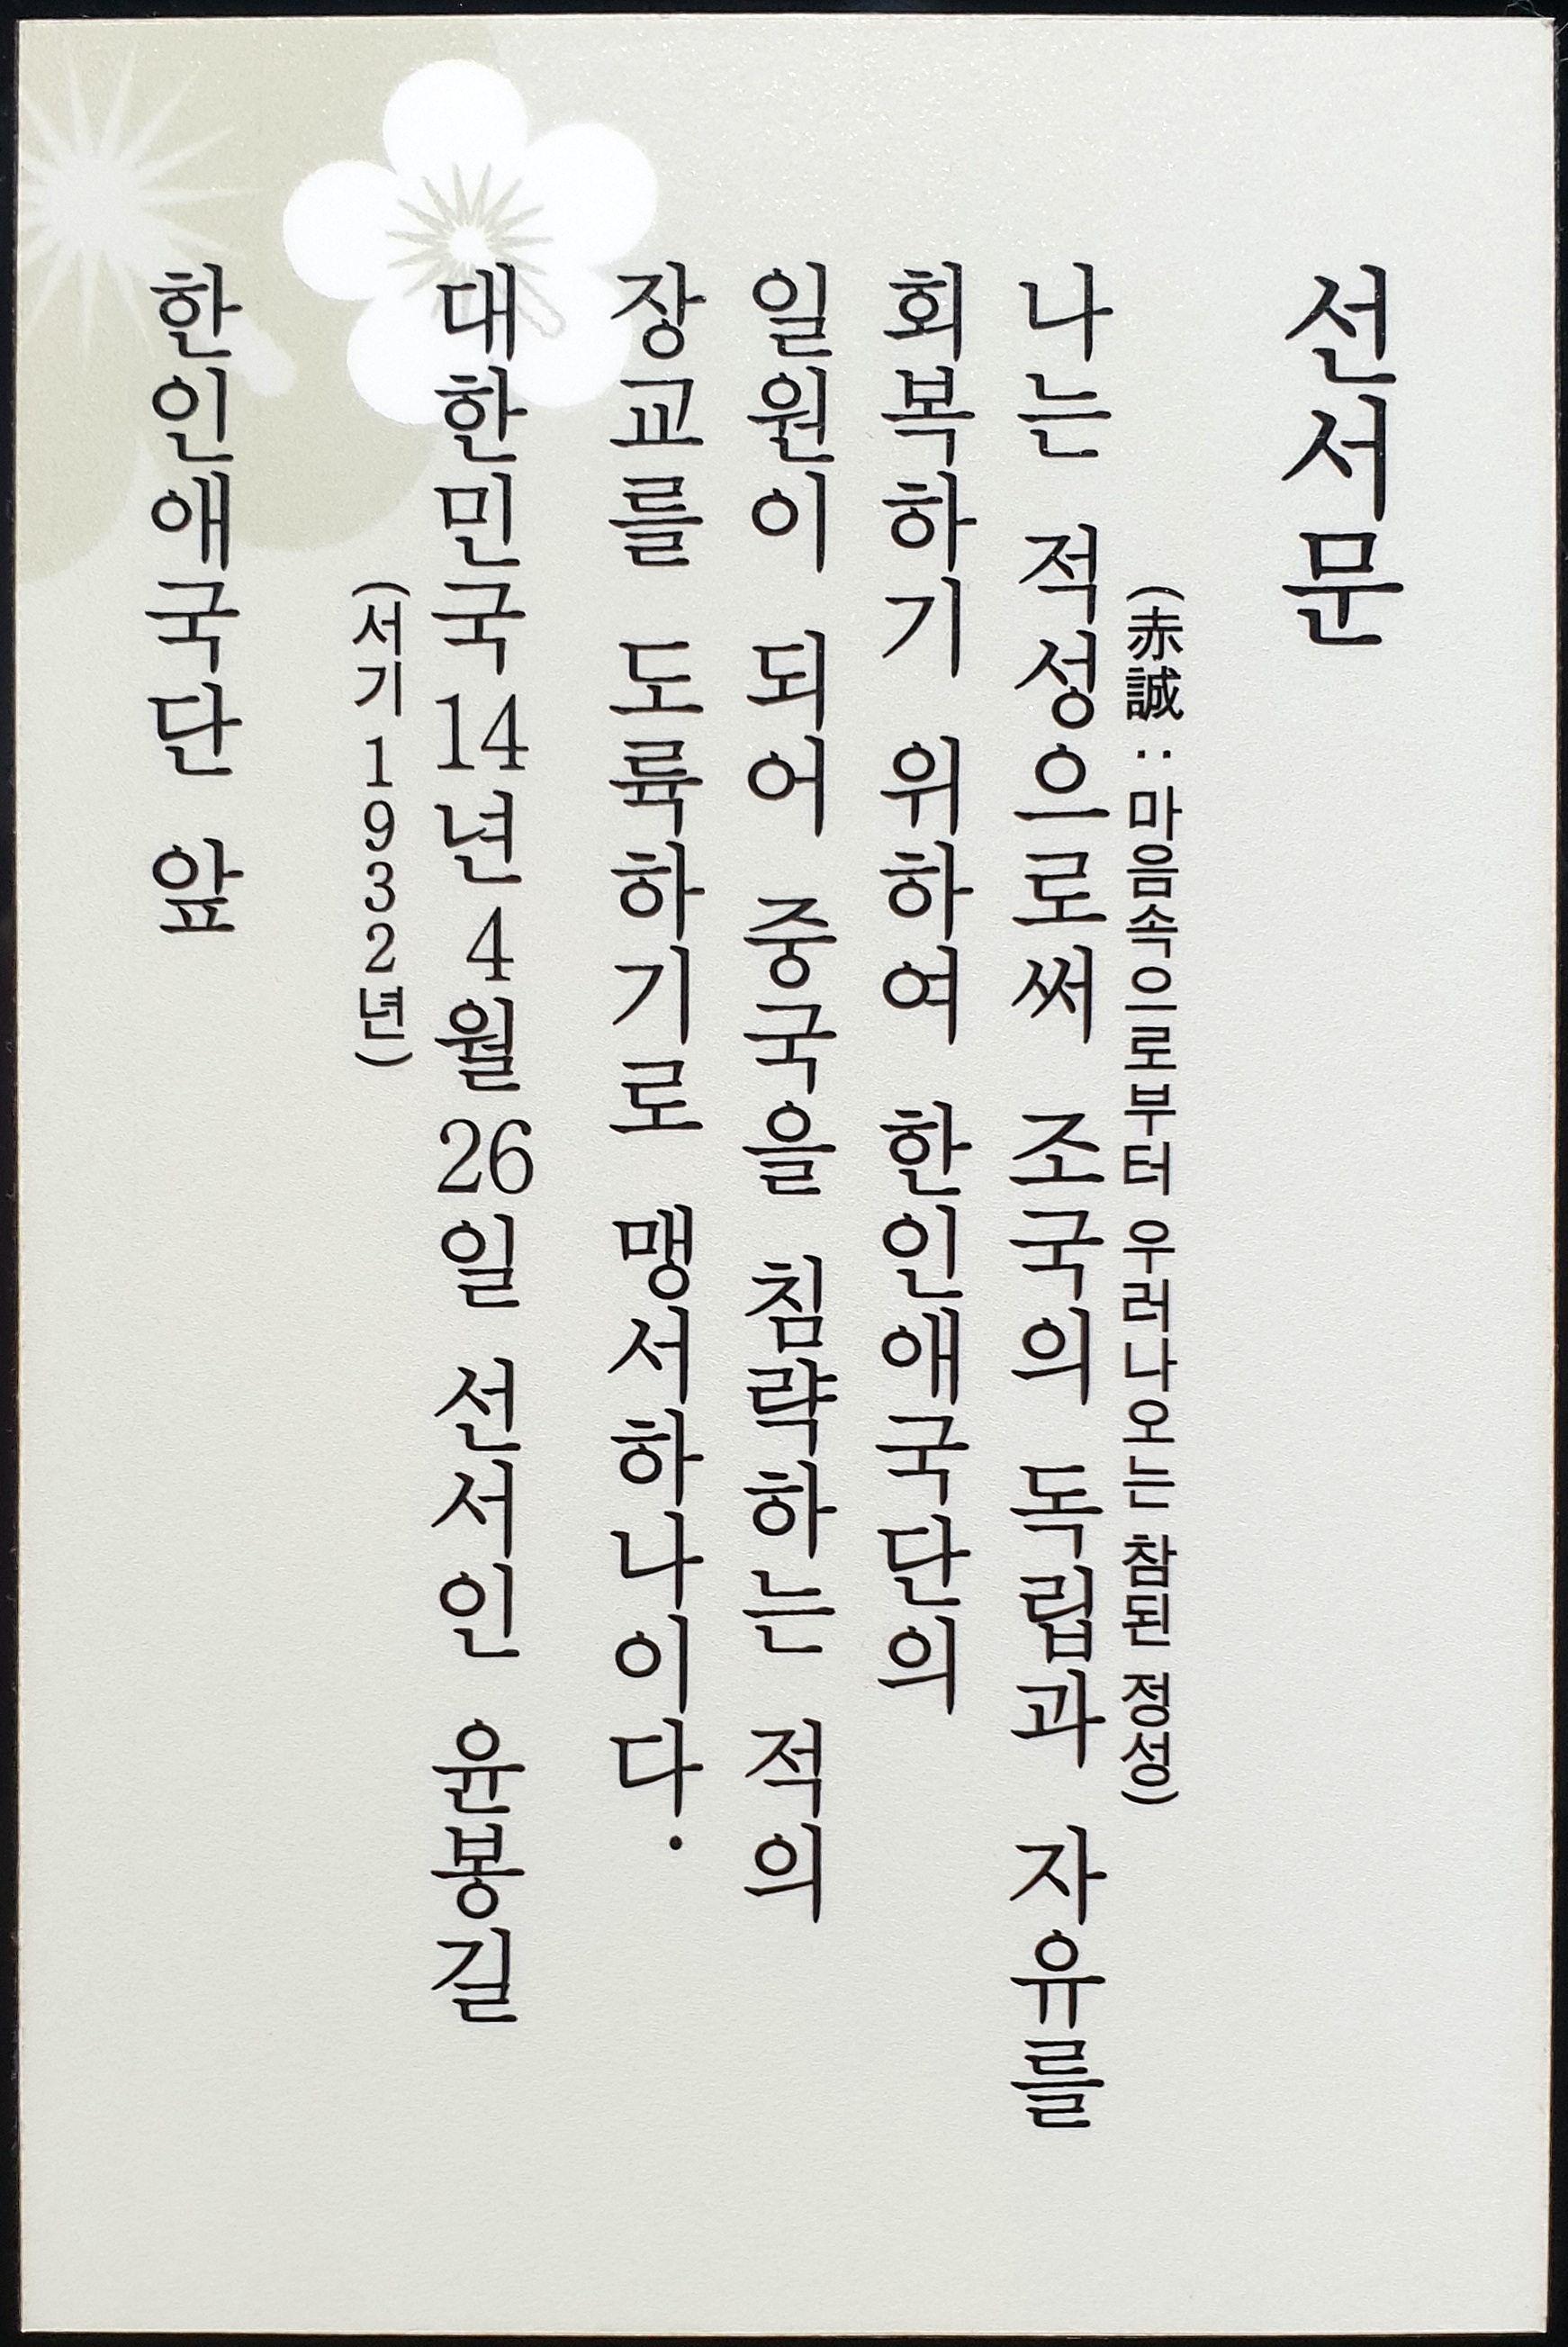 선서문
(赤誠 : 마음속으로부터 우러나오는 참된 정성)
나는 적성으로써 조국의 독립과 자유를
회복하기 위하여 한인애국단의
일원이 되어 중국을 침략하는 적의
장교를 도륙하기로 맹서하나이다.
대한민국 14년 4월 26일 선서인 윤봉길
(서기 1932년)
한인애국단 앞